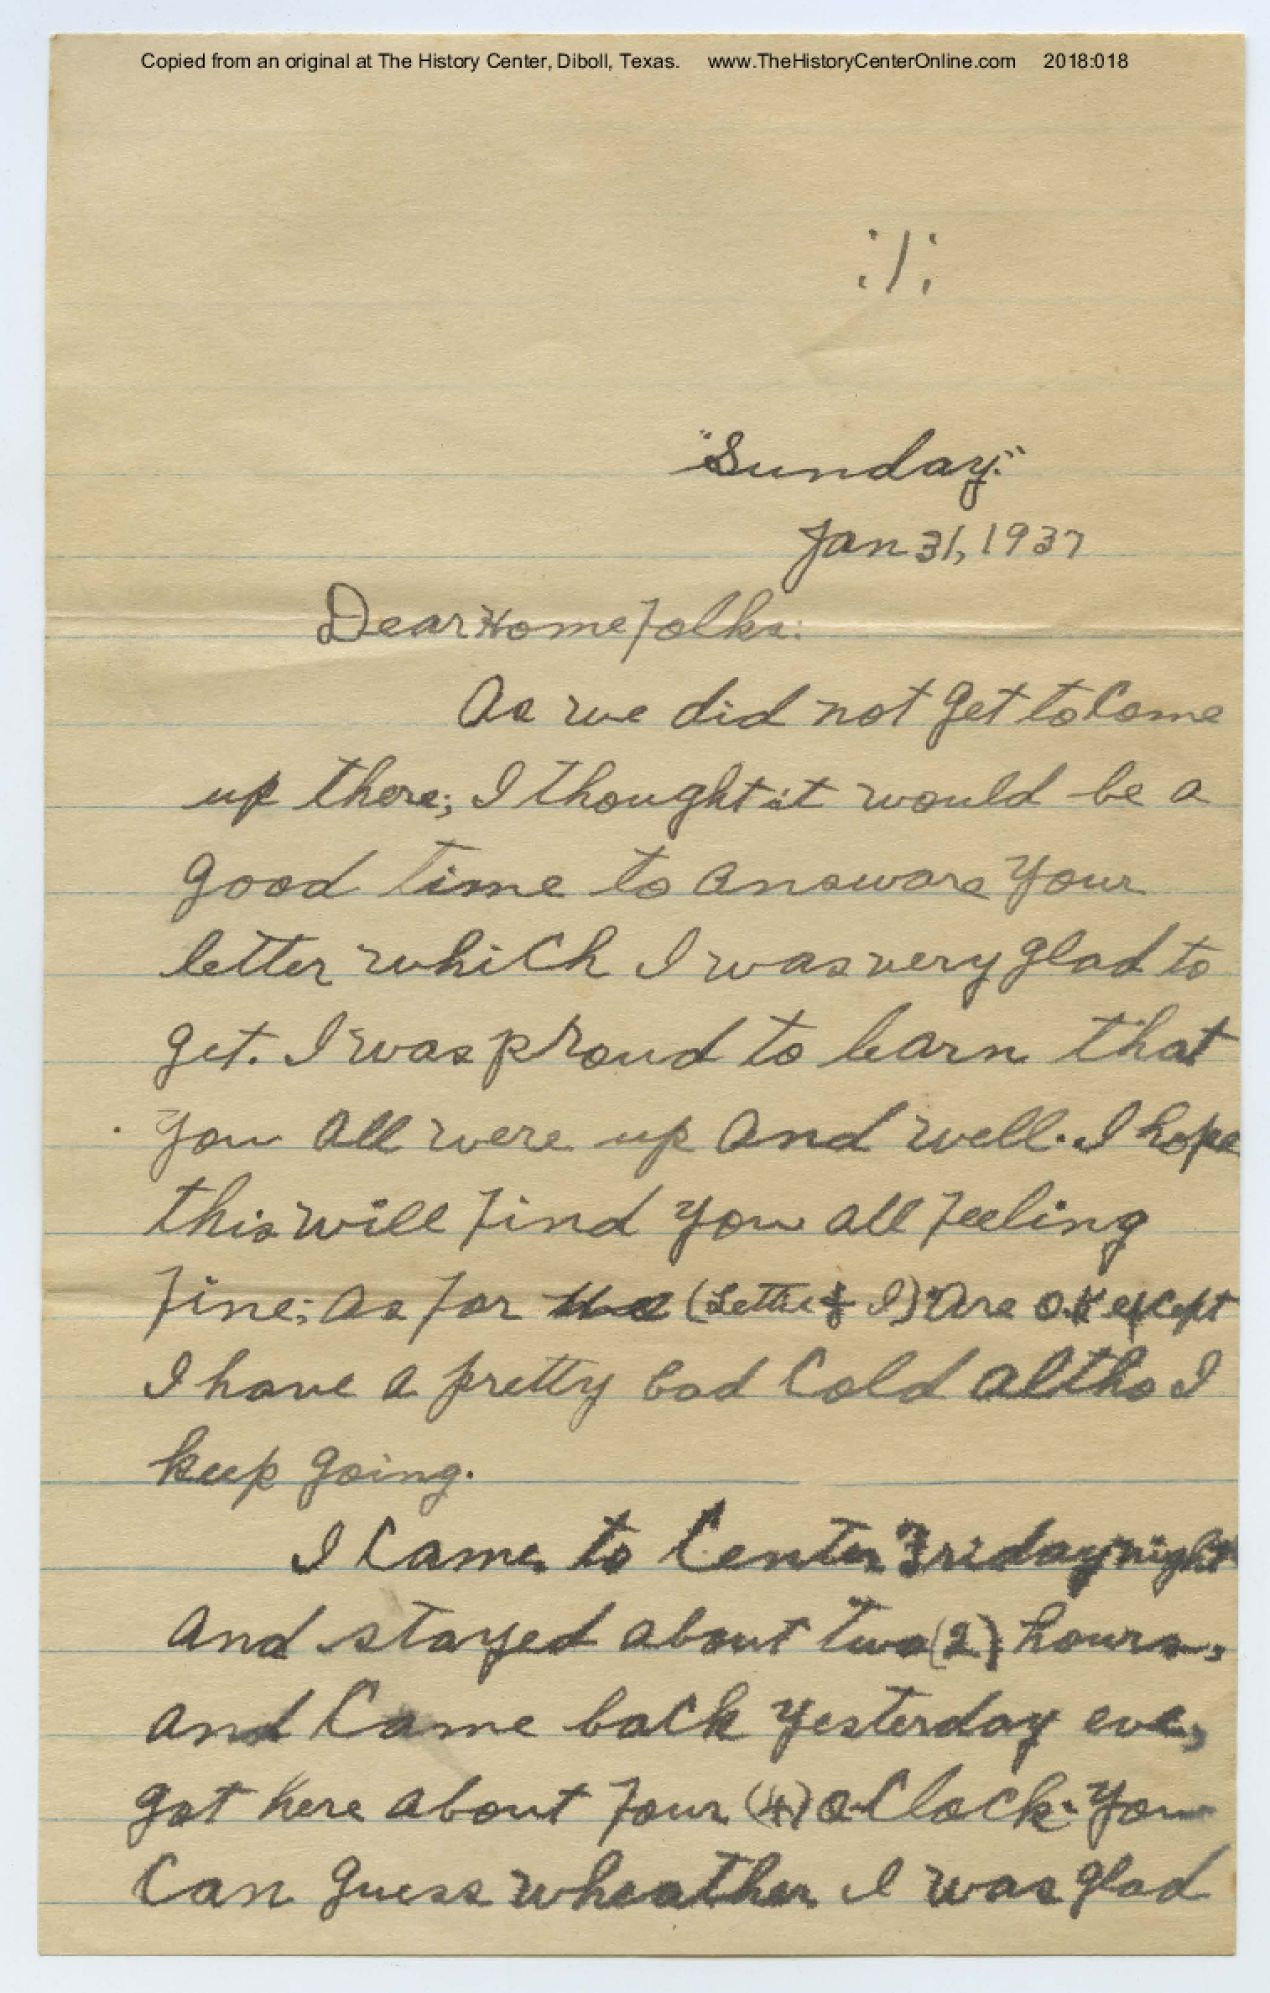 Copied from an original at The History Center, Diboll, Texas. www.TheHistoryCenterOnline.com 2018:018
:1:
"Sunday."
Jan 31, 1937
Dear Home Folks:
As we did not get to Come
up there; I thought it would be a
good time to answare your
letter which I was very glad to
get. I was proud to learn that
you all were up and well. I hope
this will find you all feeling
fine; as for (Lettie & I) are O.K except
I have a pretty bad Cold altho I
keep going.
I Came to Center Friday night
and stayed about two (2) hours,
and Came back yesterday eve,
got here about four (4) o-Clock. You
Can guess wheather I was glad